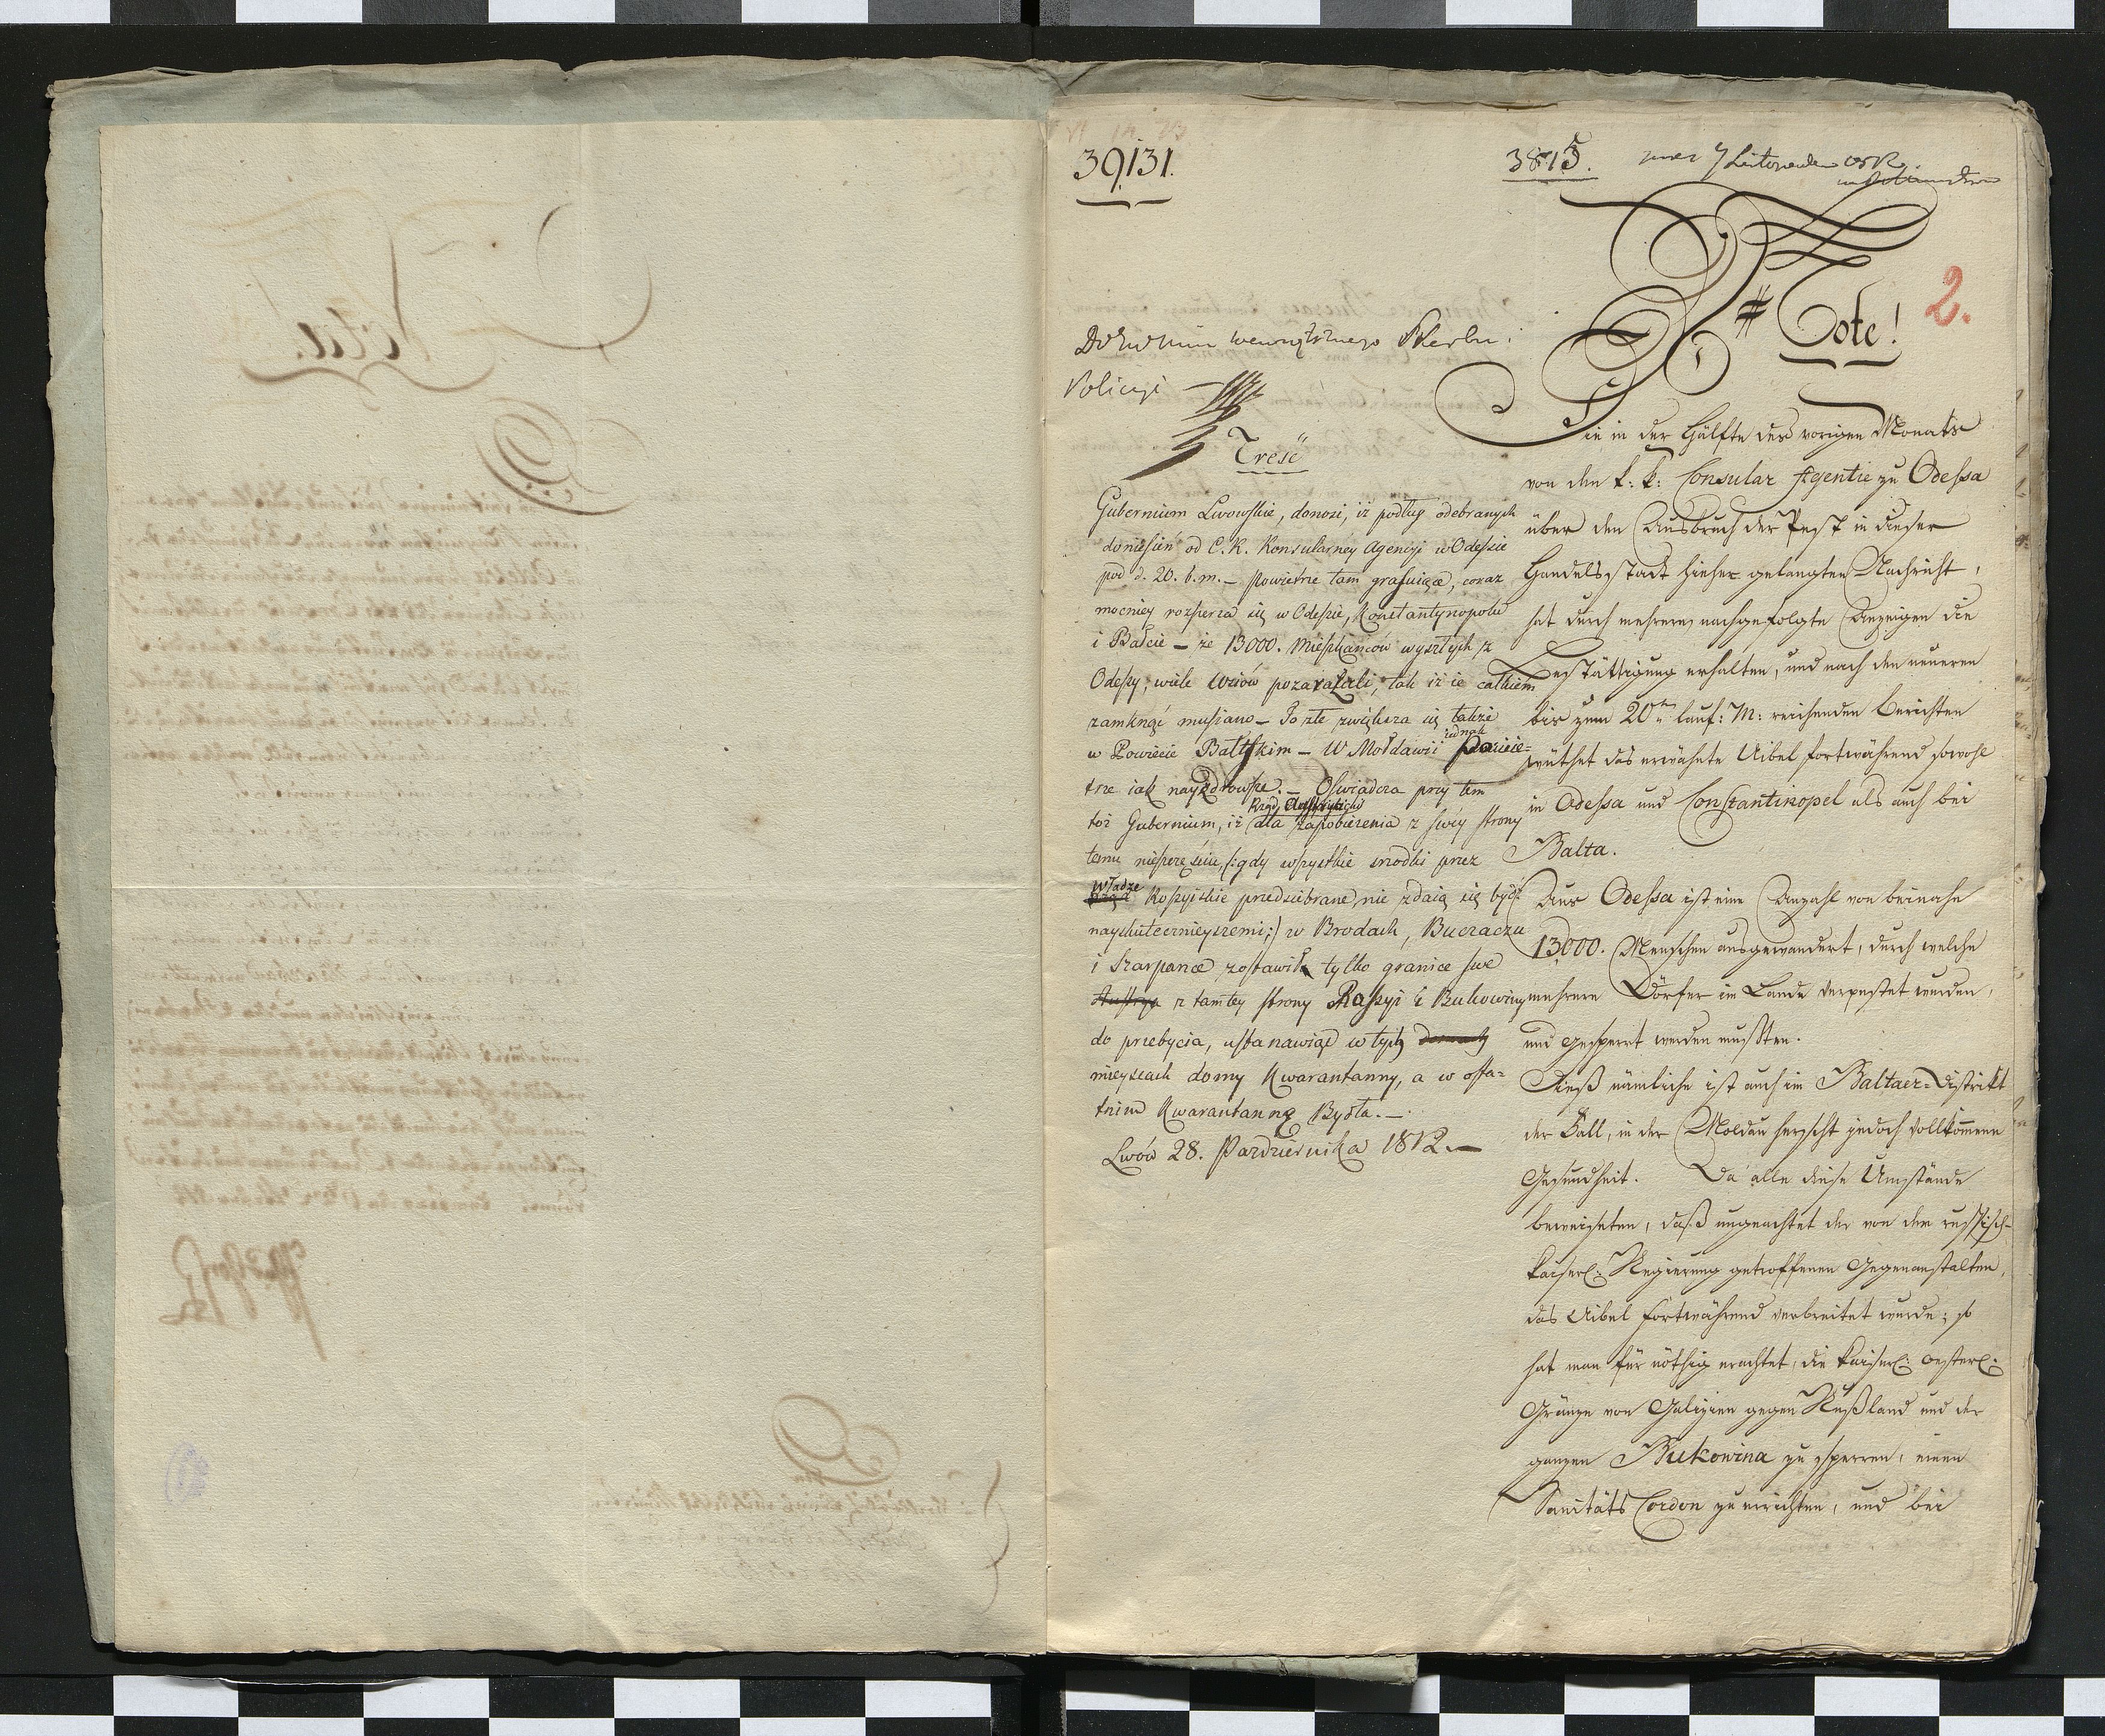 39,131.
3815.
2.
Note!
Policyi
Treść
Gubernium Lwowskie, donosi, iż podług odebranych
doniesień od C. K. Konsularney Agencyi w Odessie
pod d. 20. b. m. – powietrze tam grasuiące, coraz
mocniey rozszerza się w Odessie, Konstantynopolu
i Bałcie – że 13000. Mieszkańców wyszłych z
Odessy, wiele wsiów pozarażali, tak iż ie całkiem
zamknąć musiano – To złe zwiększa się także
w Powiecie Baltskim – W Mołdawii iednak Powie-
trze iak nayzdrowsze. – Oświadcza przy tem
toż Gubernium, iż Rząd Austryacki dla zapobieżenia z swey strony
temu nieszczęściu, (: gdy wszystkie srodki przez
władze Rossyiskie przedsiebrane, nie zdaią się być
nayskutecznieyszemi ;) w Brodach, Buczaczu
i Szarpance zostawił tylko granice swe
z tamtey strony Rossyi i Bukowiny
do przebycia, ustanawiąc w tych
mieyscach domy Kwarantanny, a w osta-
tnim Kwarantannę Bydła. –
Lwów 28. Pazdziernika 1812. –
Die in der Hälfte des vorigen Monats
von den k: k: Consular Agentie zu Odessa
über den Ausbruch der Pest in dieser
Handelsstadt hieher gelangten Nachricht,
hat durch mehrere nachgefolgte Anzeigen die
Bestättigung erhalten, und nach den neueren
bis zum 20ten lauf: M: reichenden Berichten
wüthet das erwähnte Uibel fortwährend sowohl
in Odessa und Constantinopel als auch bei
Balta.
Aus Odessa ist eine Anzahl von beinahe
13,000. Menschen ausgewandert, durch welche
mehrere Dörfer im Lande verpestet wurden,
und gesperrt werden mußten.
Dieß nämliche ist auch im Baltaer-Distrikt
der Fall, in der Moldau herrscht jedoch vollkommene
Gesundheit. Da alle diese Umstände
beweiseten, daß ungeachtet der von der russisch-
kaiserl: Regierung getroffenen Gegenanstalten,
das Uibel fortwährend verbreitet wurde; so
hat man für nöthig erachtet, die kaiserl: oesterl:
Gränze von Galizien gegen Rußland und der
ganzen Bukowina zu sperren, einen
Sanitäts Cordon zu errichten, und bei